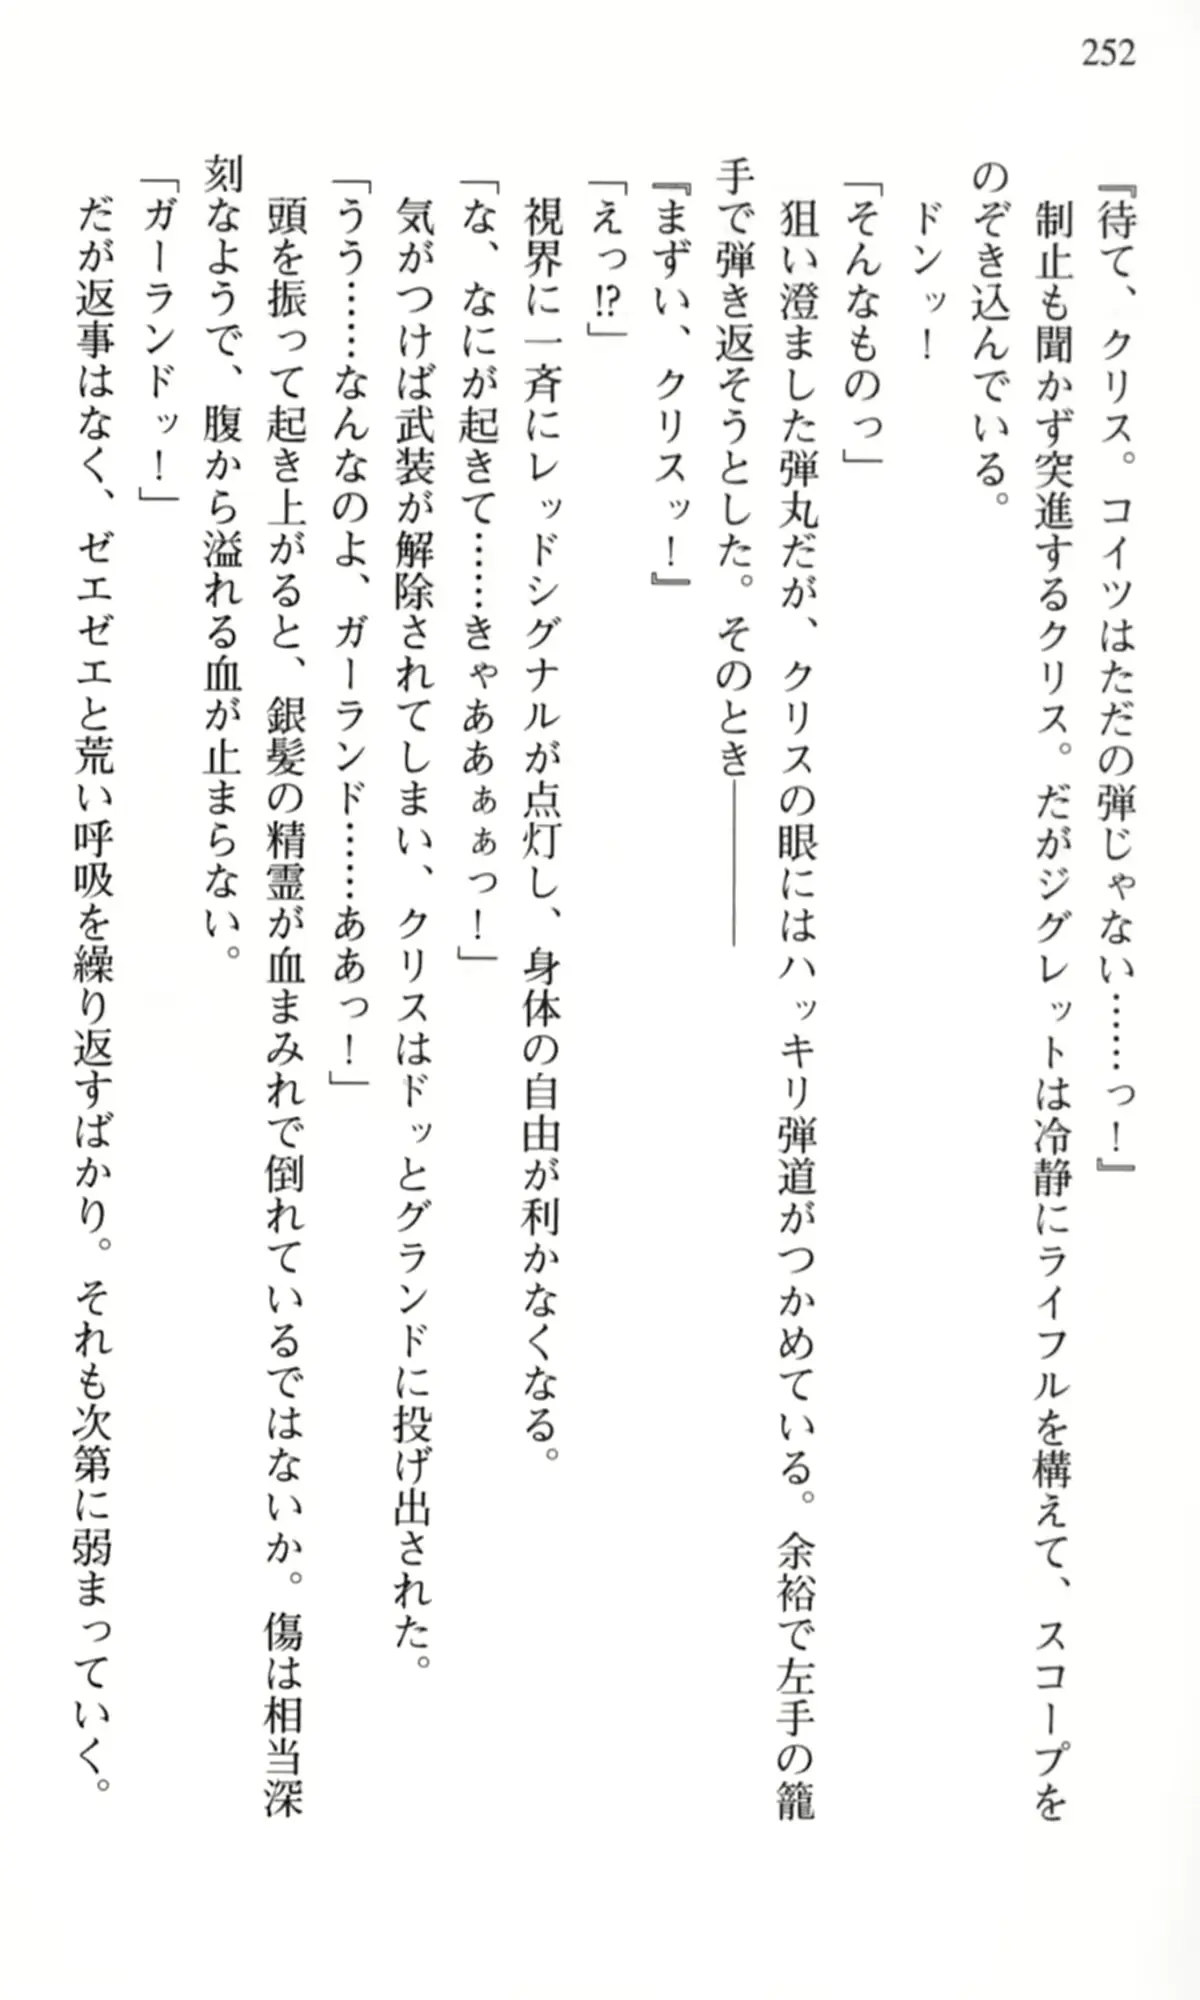 252
『待て、クリス。コイツはただの弾じゃない……っ！』
制止も聞かず突進するクリス。だがジグレットは冷静にライフルを構えて、スコープを
のぞき込んでいる。
ドンッ！
「そんなものっ」
狙い澄ました弾丸だが、クリスの眼にはハッキリ弾道がつかめている。余裕で左手の籠
手で弾き返そうとした。そのとき――――
『まずい、クリスッ！』
「えっ!?」
視界に一斉にレッドシグナルが点灯し、身体の自由が利かなくなる。
「な、なにが起きて……きゃああぁぁっ！」
気がつけば武装が解除されてしまい、クリスはドッとグランドに投げ出された。
「うう……なんなのよ、ガーランド……ああっ！」
頭を振って起き上がると、銀髪の精霊が血まみれで倒れているではないか。傷は相当深
刻なようで、腹から溢れる血が止まらない。
「ガーランドッ！」
だが返事はなく、ゼエゼエと荒い呼吸を繰り返すばかり。それも次第に弱まっていく。